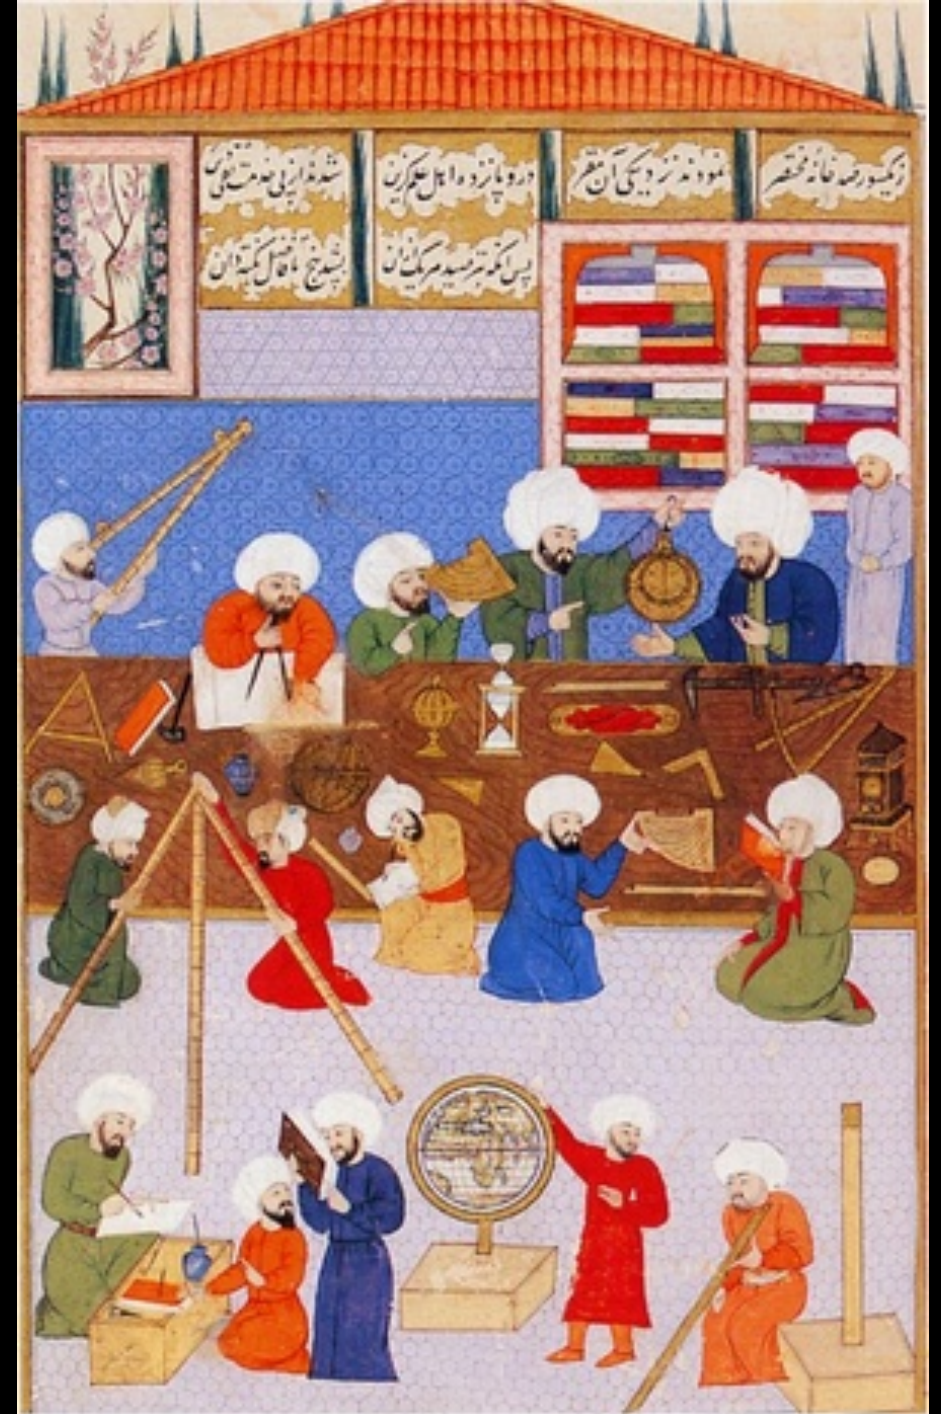 ز یکسو رصد خانه مختصر نمودند نزدیکی آن مقر درو پانزده اهل علم گزین شدند از پی خدمت
پس آنکه بترصید هر یک ازان بشد پنج تا فاضل نکته دان